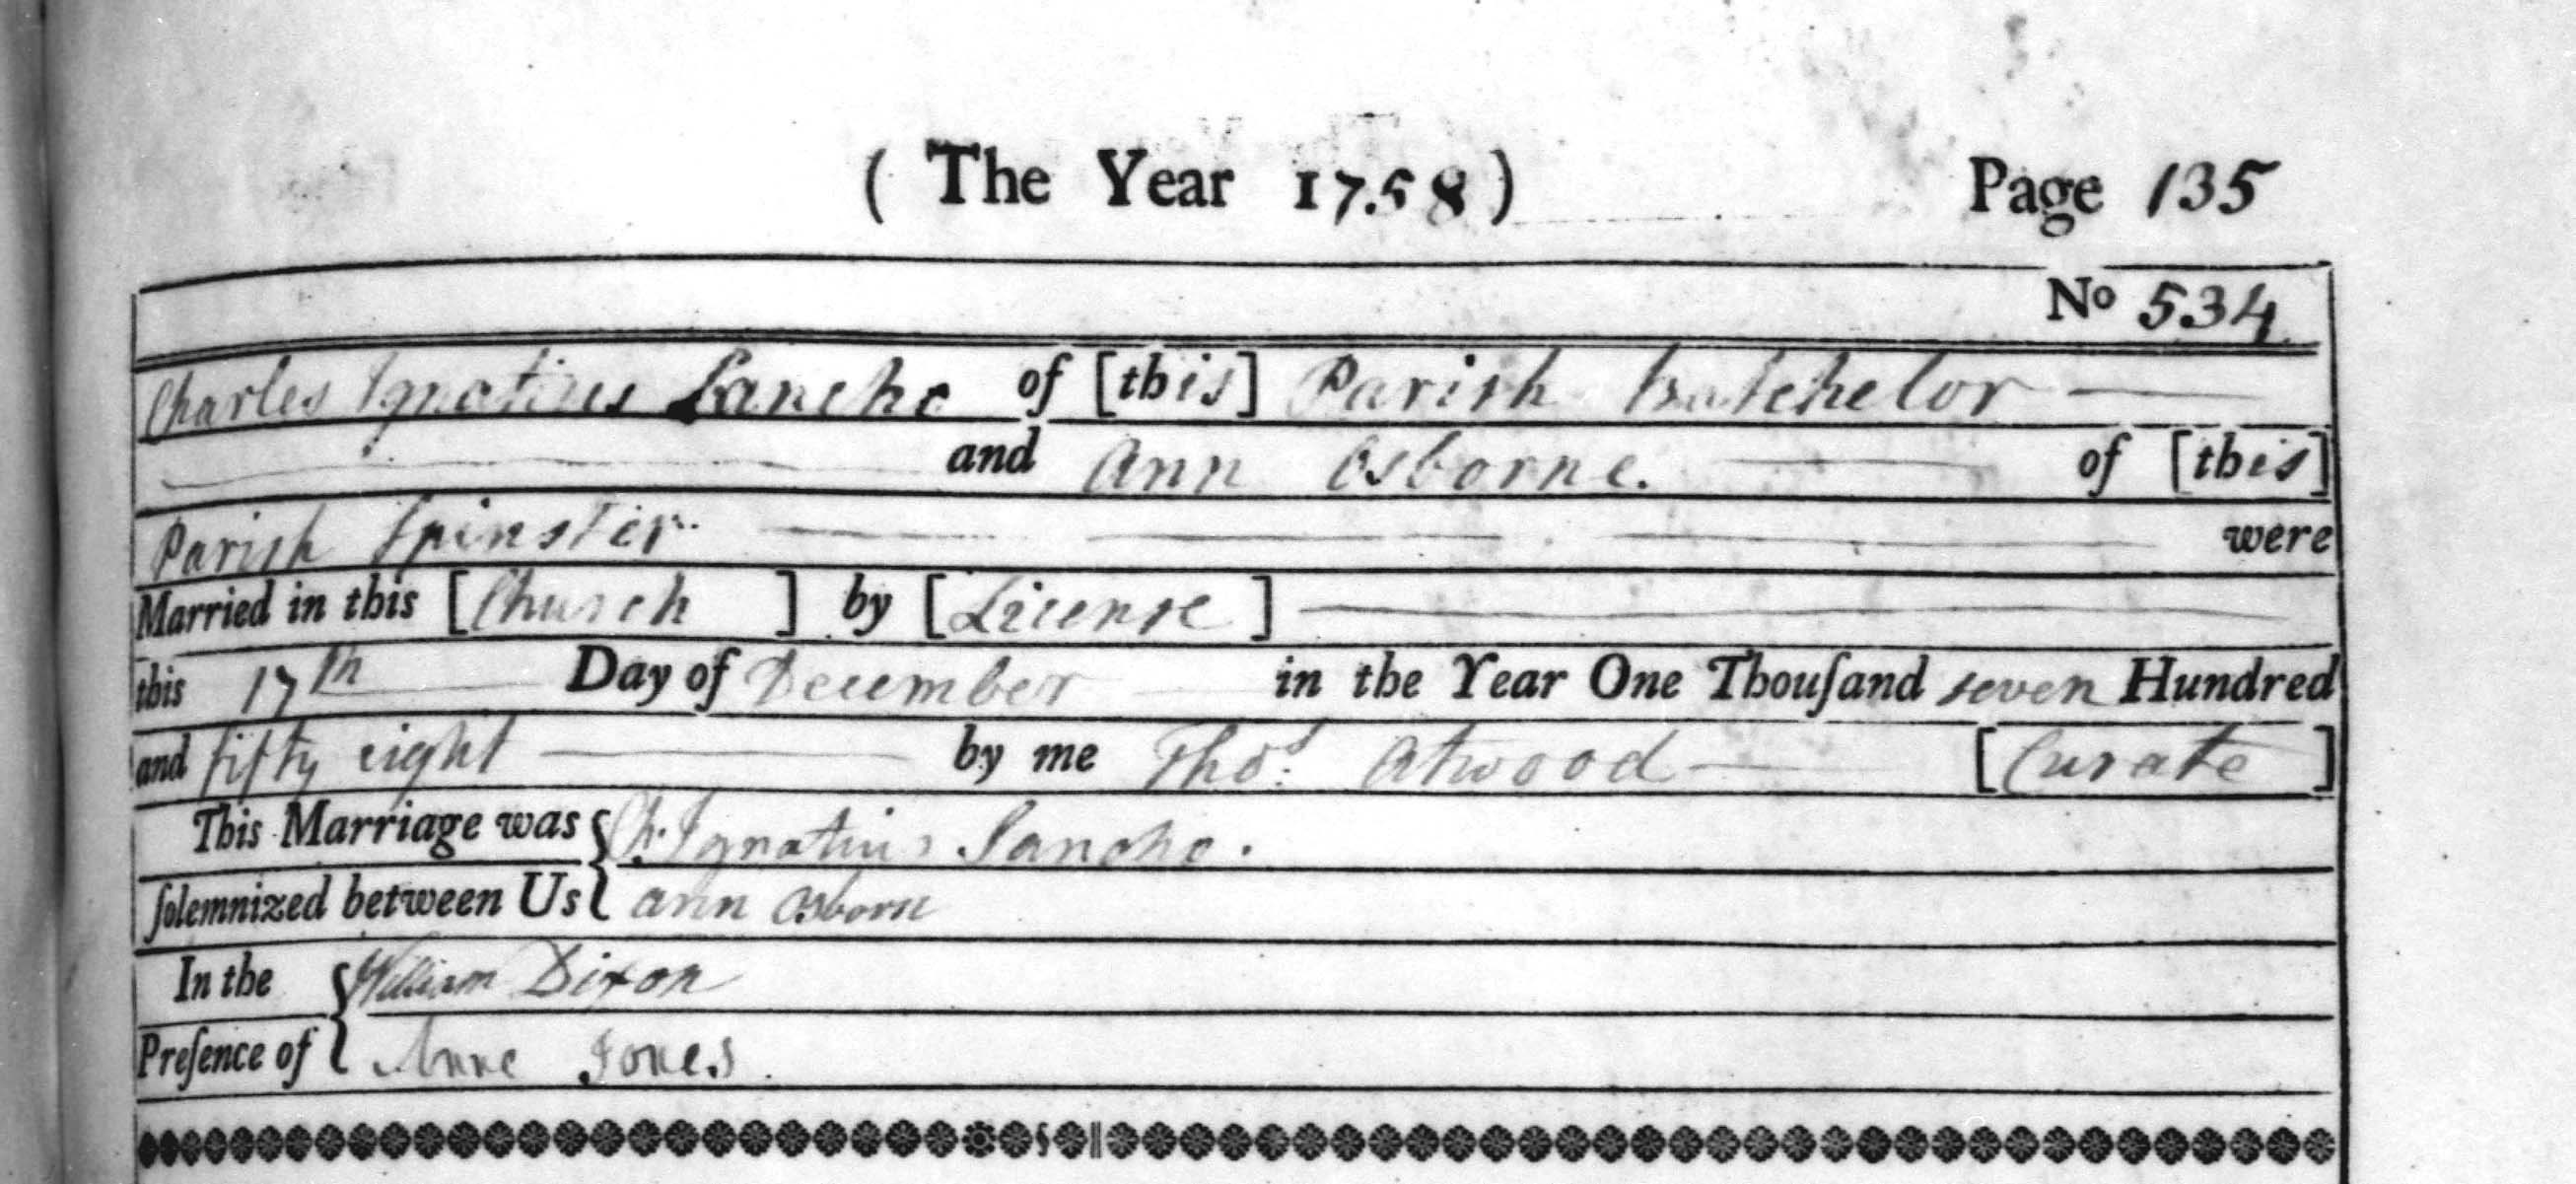 ( The Year 1758 ) Page 135
No 534
Charles Ignatius Sancho of [this] Parish Batchelor
and Ann Osborne. of [this]
Parish Spinster were
Married in this [Church] by [License]
this 17th Day of December in the Year One Thouſand seven Hundred
and fifty eight by me Thos: Atwood [Curate]
This Marriage was { Ch. Ignatius Sancho.
ſolemnized between Us { ann osborn
In the { William Dixon
Preſence of { Anne Jones.